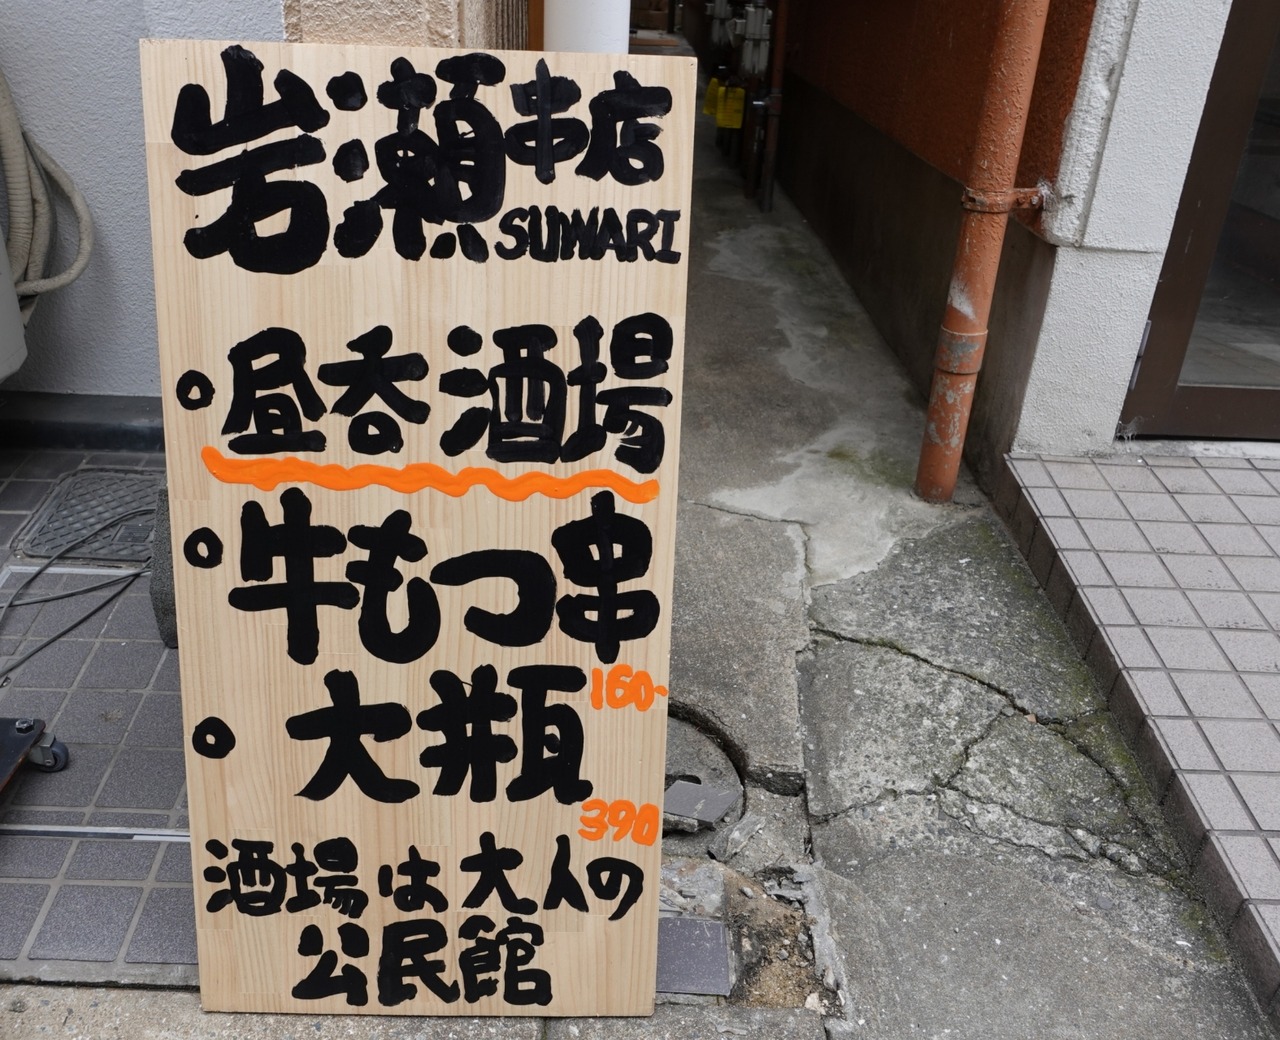 岩瀬串店
SUWARI
。昼呑酒場
。牛もつ串
160-
。大瓶
390
酒場は大人の
公民館